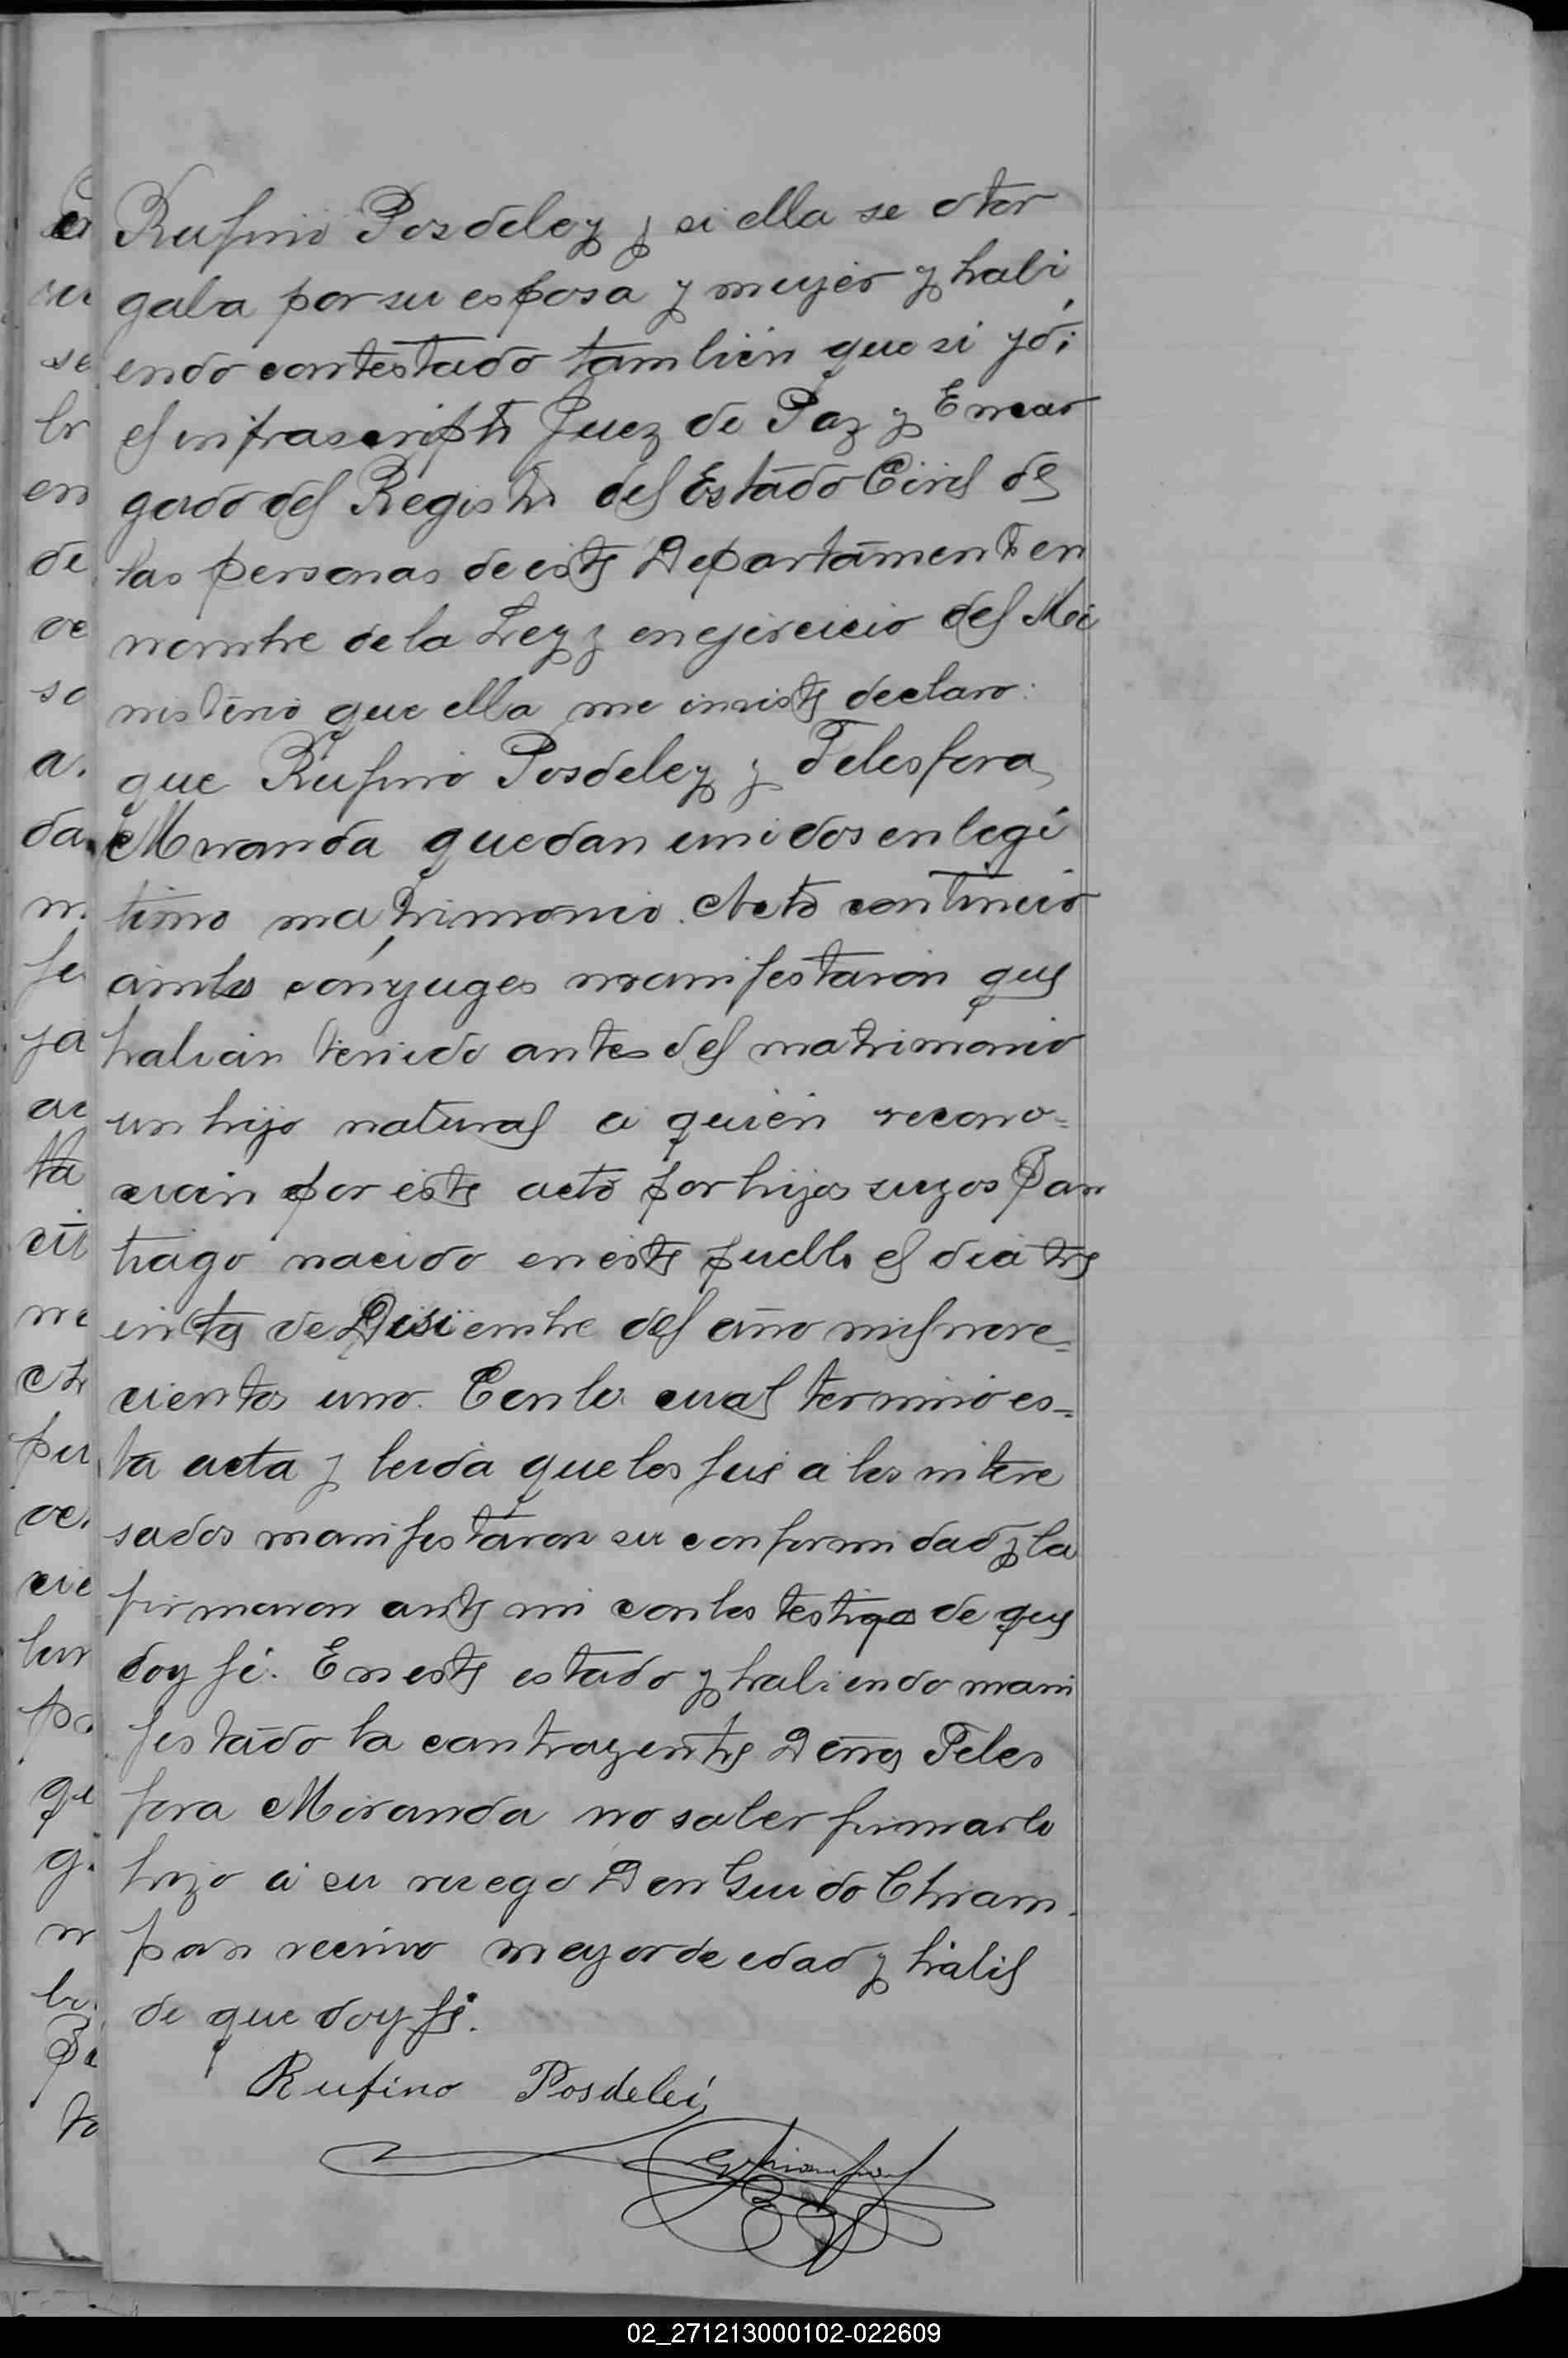 Rufino Posdeley y si ella se otor
gaba por su esposa y mujer y habi
endo contestado tambien que si yó;
el infrascripto Juez de Paz y Encar
gado del Registro del Estado Civil de
las personas de este Departamento en
nombre de la Ley y en ejercicio del Mi
nisterio que ella me inviste declaro:
que Rufino Posdeley y Telesfora
Miranda quedan unidos en legi
timo matrimonio. Acto continuo
ambos cónyuges manifestaron que
habian tenido antes del matrimonio
un hijo natural a quien recono=
cian por este acto por hijos suyos
nacido en este pueblo el dia tre
inta de Disiembre del año mil nove=
cientos uno. Con lo cual terminó es=
ta acta y leida que les fué a los intere
sados manifestáron su conformidad y la
firmaron ante mi con los testigos de que
doy fé. En este estado y habiendo mani
festado la contrayente Doña Teles
fora Miranda no saber firmar lo
hizo a su ruego Don Guido Chiam
pan vecino mayor de edad y hábil
de que doy fé.
Rufino Posdelei
GChiampan
02_271213000102-022609